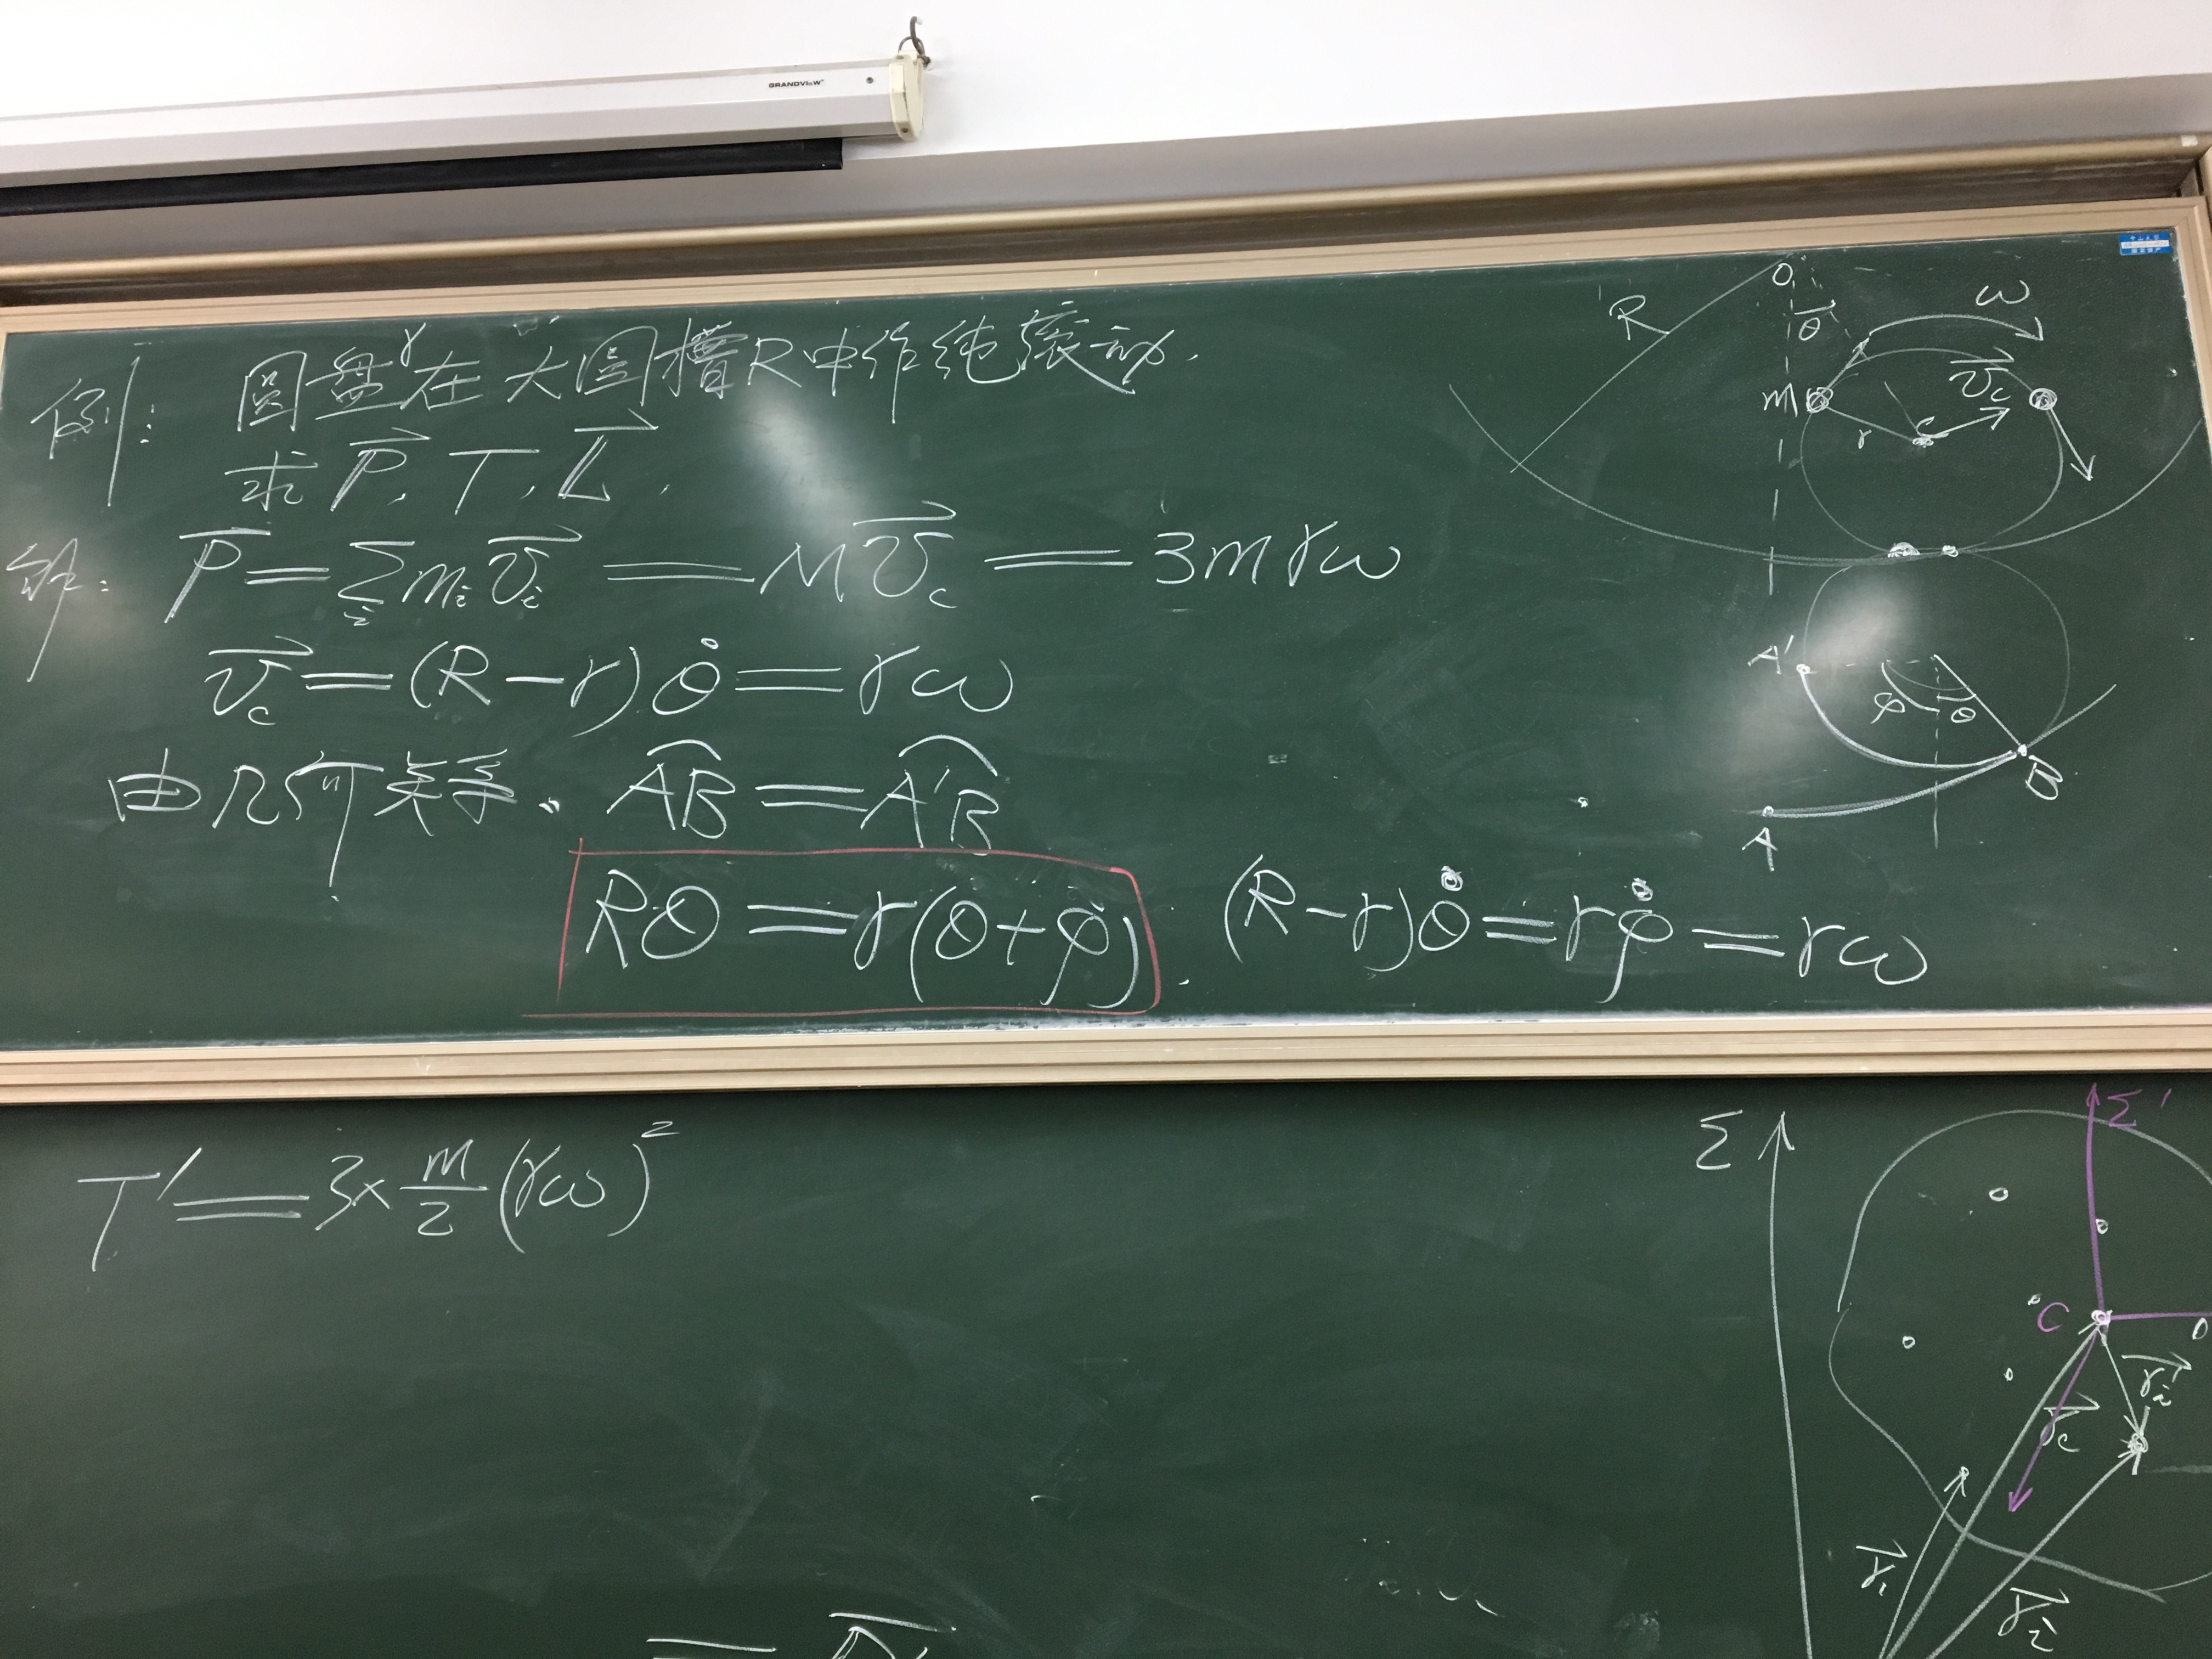 GRANDVIEW
例: 圆盘r在大圆槽R中作纯滚动.
求 P⃗, T, L⃗.
解: P⃗ = Σᵢ mᵢ v⃗ᵢ = M v⃗_c = 3mrω
v⃗_c = (R−r)θ̇ = rω
由几何关系. A͡B = A͡'B
Rθ = r(θ+φ). (R−r)θ̇ = rφ̇ = rω
R
O
θ
ω
m
r
C
v⃗_c
A'
φ θ
B
A
T' = 3× m/2 (rω)²
Σ
Σ'
C
r⃗ᵢ'
r⃗_c
r⃗₁
r⃗ᵢ